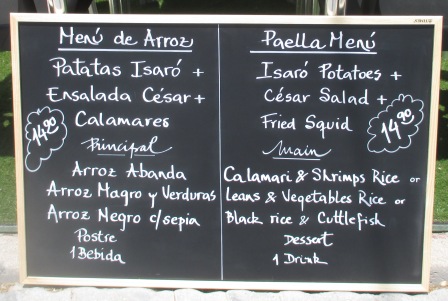 Menú de Arroz
Patatas Isaró +
Ensalada César +
Calamares
14.90
Principal
Arroz Abanda
Arroz Magro y Verduras
Arroz Negro c/sepia
Postre
1 Bebida
Paella Menú
Isaró Potatoes +
César Salad +
Fried Squid
14.90
Main
Calamari & Shrimps Rice or
Leans & Vegetables Rice or
Black rice & Cuttlefish
Dessert
1 Drink